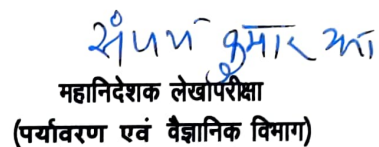 संजय कुमार झा
महानिदेशक लेखापरीक्षा
(पर्यावरण एवं वैज्ञानिक विभाग)